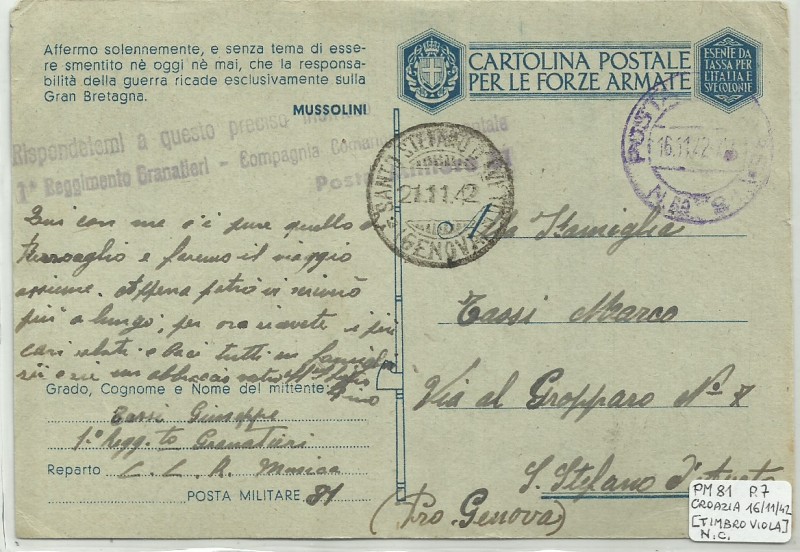 Affermo solennemente, e senza tema di esse-
re smentito nè oggi nè mai, che la responsa-
bilità della guerra ricade esclusivamente sulla
Gran Bretagna.
MUSSOLINI
CARTOLINA POSTALE
PER LE FORZE ARMATE
ESENTE DA
TASSA PER
L'ITALIA E
SUE COLONIE
Rispondetemi a questo preciso
1° Reggimento Granatieri - Compagnia
Posta
SANTO STEFANO D'AVETO
21.11.42
GENOVA
16.11.42
N. 81
Qui con me c'è pure quello di
e faremo il viaggio
assieme. Appena potrò vi scriverò
più a lungo, per ora ricevete i più
cari saluti e baci tutti in famiglia
un abbraccio vostro
Gino
Alla Famiglia
Tassi Marco
Via al Groppare N° 7
S. Stefano d'Aveto
(Pro. Genova)
Grado, Cognome e Nome del mittente:
Tassi Giuseppe
1° Regg.to Granatieri
Reparto C. C. R. Musica
POSTA MILITARE 81
PM 81 P.7
CROAZIA 16/11/42
[TIMBRO VIOLA]
N.C.